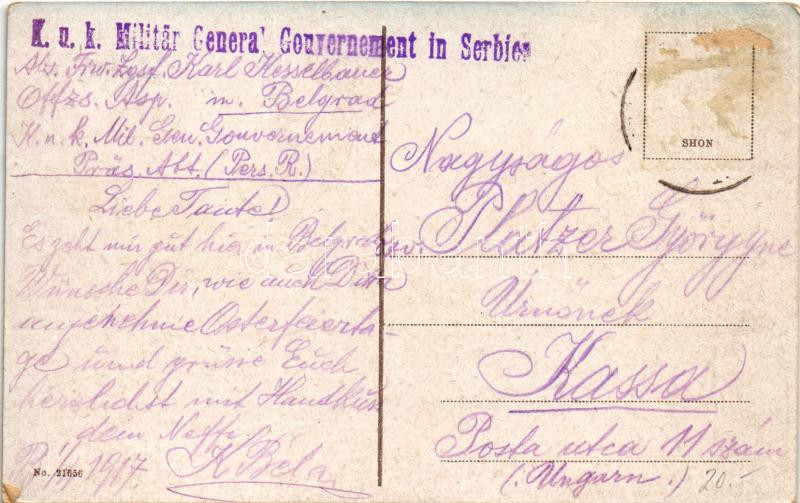 K. u. k. Militär General Gouvernement in Serbien
Abs. Frw. Zgsf. Karl Kesselbauer
Offzs. Asp. in Belgrad
K. u. k. Mil. Gen. Gouvernement
Präs. Abt. (Pers. R.)
Liebe Tante!
Es geht mir gut hier in Belgrad
Wünsche Dir, wie auch
angenehme Osterfeierta-
ge und grüsse Euch
herzlichst mit Handkuss
dein Neffe
1917. K Béla
No. 21656
SHON
Nagyságos
Platzer Györgyné
Urnőnek
Kassa
Posta utca 11 szám
(Ungarn.) 20.-
darabanth